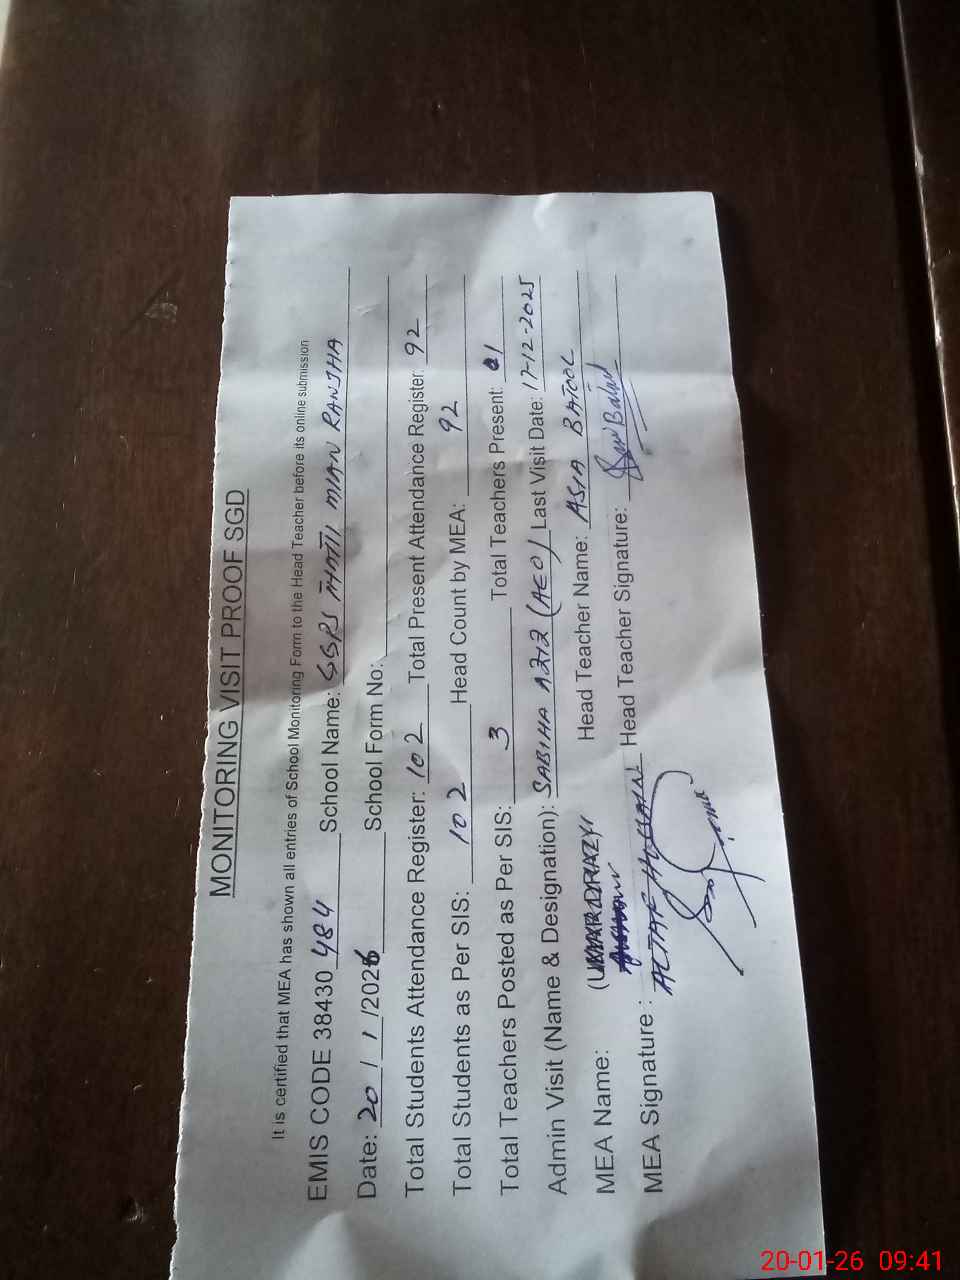 MONITORING VISIT PROOF SGD
It is certified that MEA has shown all entries of School Monitoring Form to the Head Teacher before its online submission
EMIS CODE 38430 484 School Name: GGPS MIAN RANJHA
Date: 20/1/2026 School Form No:
Total Students Attendance Register: 102 Total Present Attendance Register: 92
Total Students as Per SIS: 102 Head Count by MEA: 92
Total Teachers Posted as Per SIS: 3 Total Teachers Present: 01
Admin Visit (Name & Designation): SABIHA AZIZ (AEO) Last Visit Date: 17-12-2025
MEA Name: Head Teacher Name: ASIA BATOOL
MEA Signature : ALTAF HUSSAIN Head Teacher Signature:
20-01-26 09:41